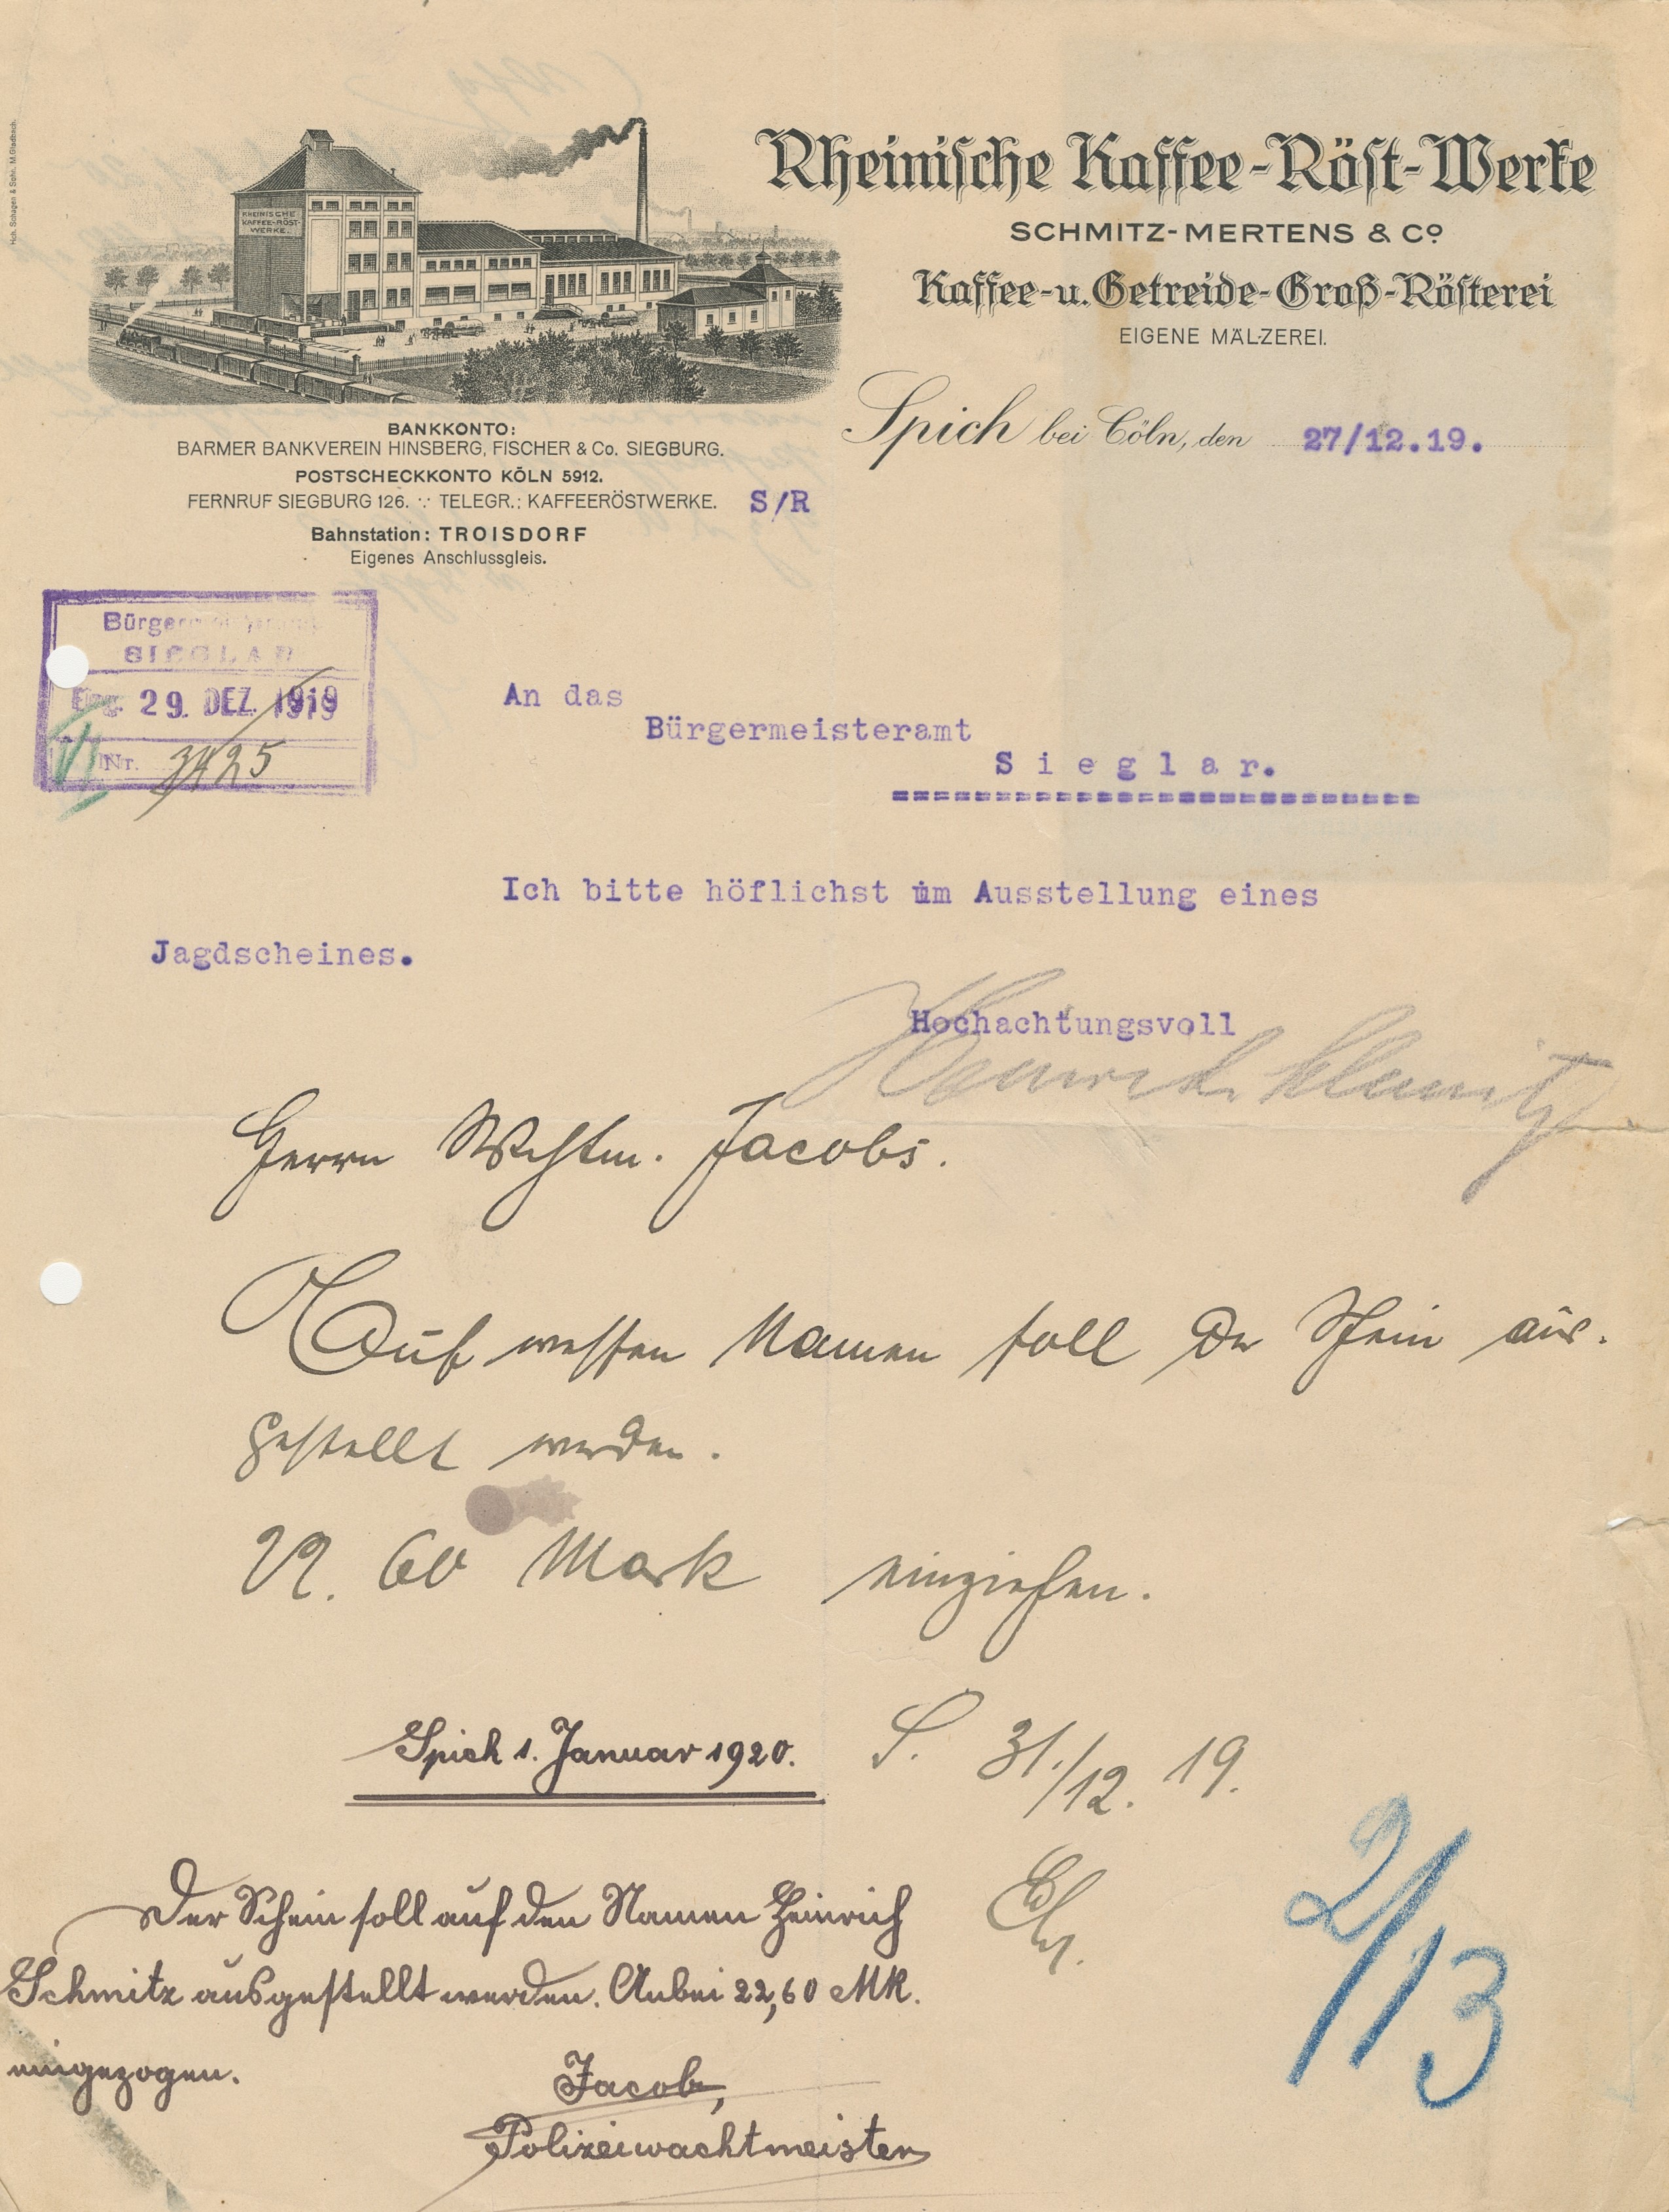 Hch. Schagen & Sohn. M.Gladbach.
RHEINISCHE
KAFFEE-RÖST-
WERKE.
Rheinische Kaffee-Röst-Werke
SCHMITZ-MERTENS & Co
Kaffee-u. Getreide-Groß-Rösterei
EIGENE MÄLZEREI.
Spich bei Cöln, den 27/12.19.
BANKKONTO:
BARMER BANKVEREIN HINSBERG, FISCHER & Co. SIEGBURG.
POSTSCHECKKONTO KÖLN 5912.
FERNRUF SIEGBURG 126. ∵ TELEGR.: KAFFEERÖSTWERKE. S/R
Bahnstation: TROISDORF
Eigenes Anschlussgleis.
SIEGLAR
Eing. 29. DEZ. 1919
VI Nr. 3425
An das
Bürgermeisteramt
Sieglar.
Ich bitte höflichst um Ausstellung eines
Jagdscheines.
Hochachtungsvoll
Heinrich Schmitz
Herrn Wachtm. Jacobs.
Auf wessen Namen soll der Schein aus-
gestellt werden.
22.60 Mark einziehen.
S. 31./12. 19.
Spich 1. Januar 1920.
Der Schein soll auf den Namen Heinrich
Schmitz ausgestellt werden. Anbei 22,60 Mk.
eingezogen.
Jacobs,
Polizeiwachtmeister
2/13